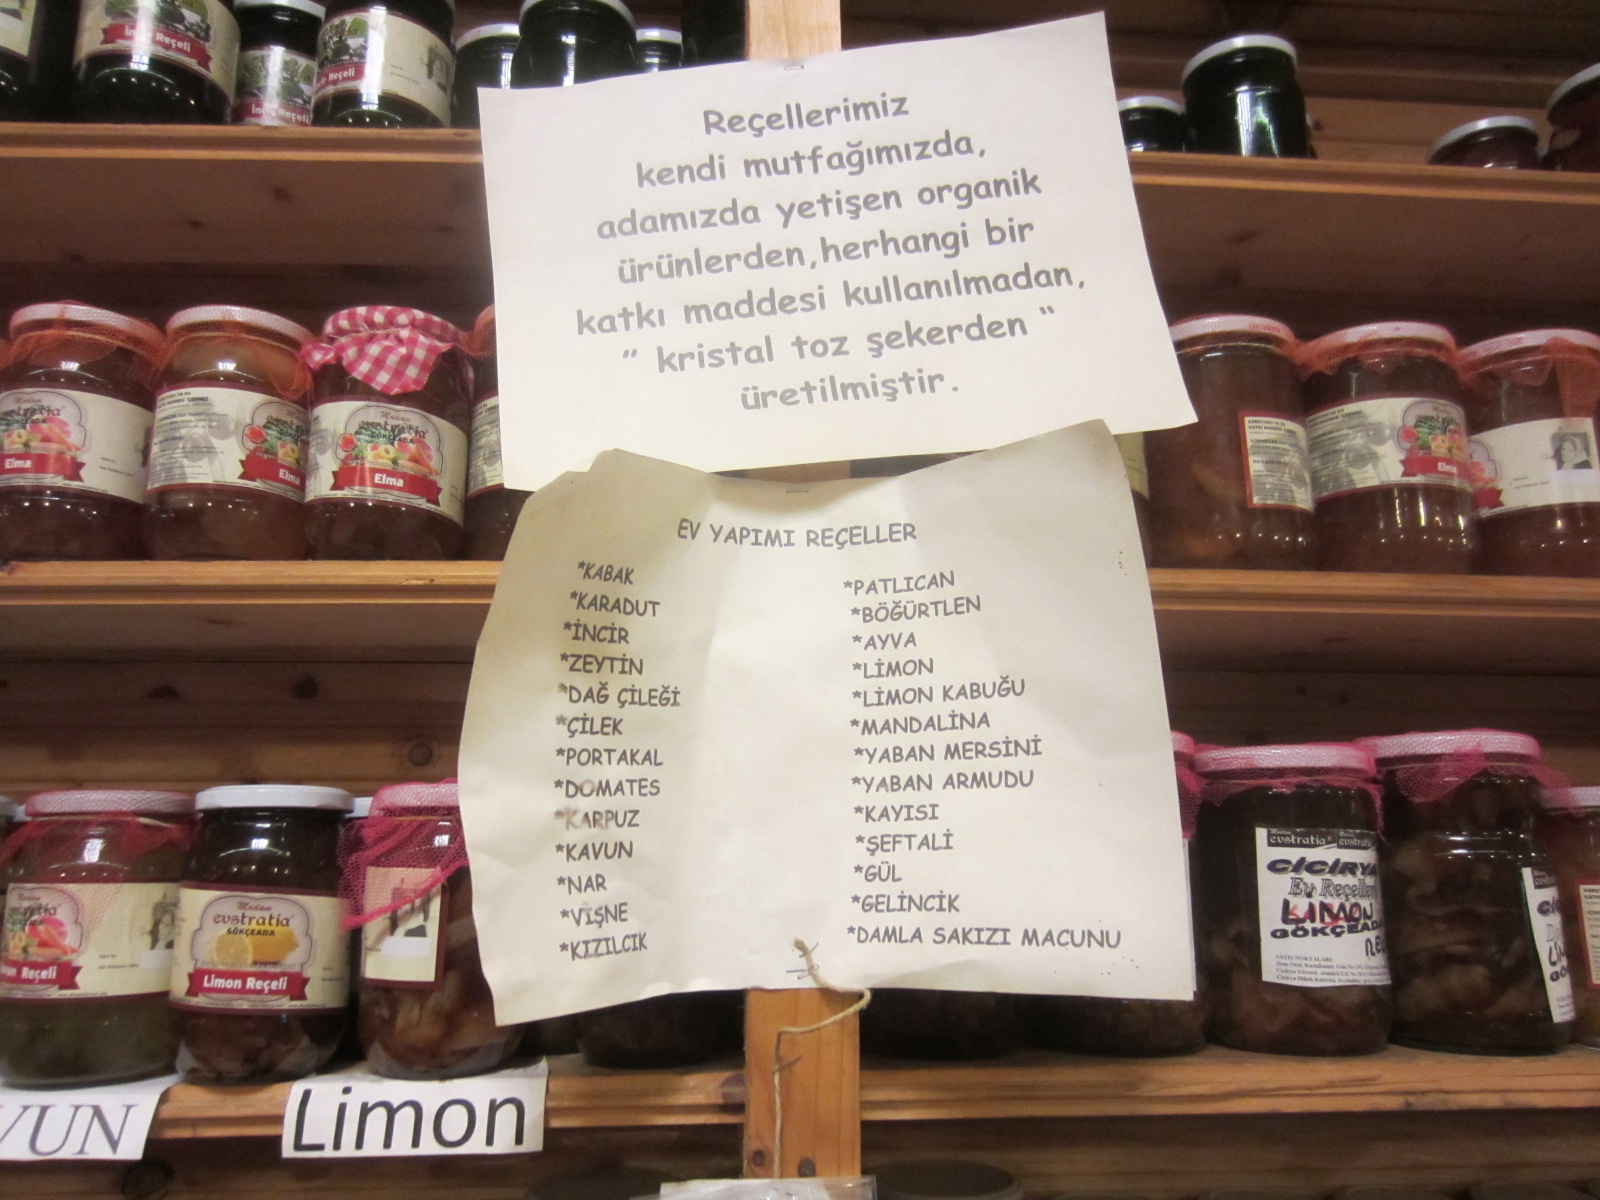 İncir Reçeli
İncir Reçeli
Reçeli
Reçellerimiz
kendi mutfağımızda,
adamızda yetişen organik
ürünlerden,herhangi bir
katkı maddesi kullanılmadan,
" kristal toz şekerden "
üretilmiştir.
evstratia
Elma
Elma
Madam
evstratia
GÖKÇEADA
Elma
EV YAPIMI REÇELLER
*KABAK
*KARADUT
*İNCİR
*ZEYTİN
*DAĞ ÇİLEĞİ
*ÇİLEK
*PORTAKAL
*DOMATES
*KARPUZ
*KAVUN
*NAR
*VİŞNE
*KIZILCIK
*PATLICAN
*BÖĞÜRTLEN
*AYVA
*LİMON
*LİMON KABUĞU
*MANDALİNA
*YABAN MERSİNİ
*YABAN ARMUDU
*KAYISI
*ŞEFTALİ
*GÜL
*GELİNCİK
*DAMLA SAKIZI MACUNU
Reçeli
Madam
evstratia
GÖKÇEADA
Limon Reçeli
evstratia evstratia
CİCİRYA
Ev Reçelleri
LIMON
GÖKÇEADA
SATIŞ NOKTALARI:
VUN
Limon